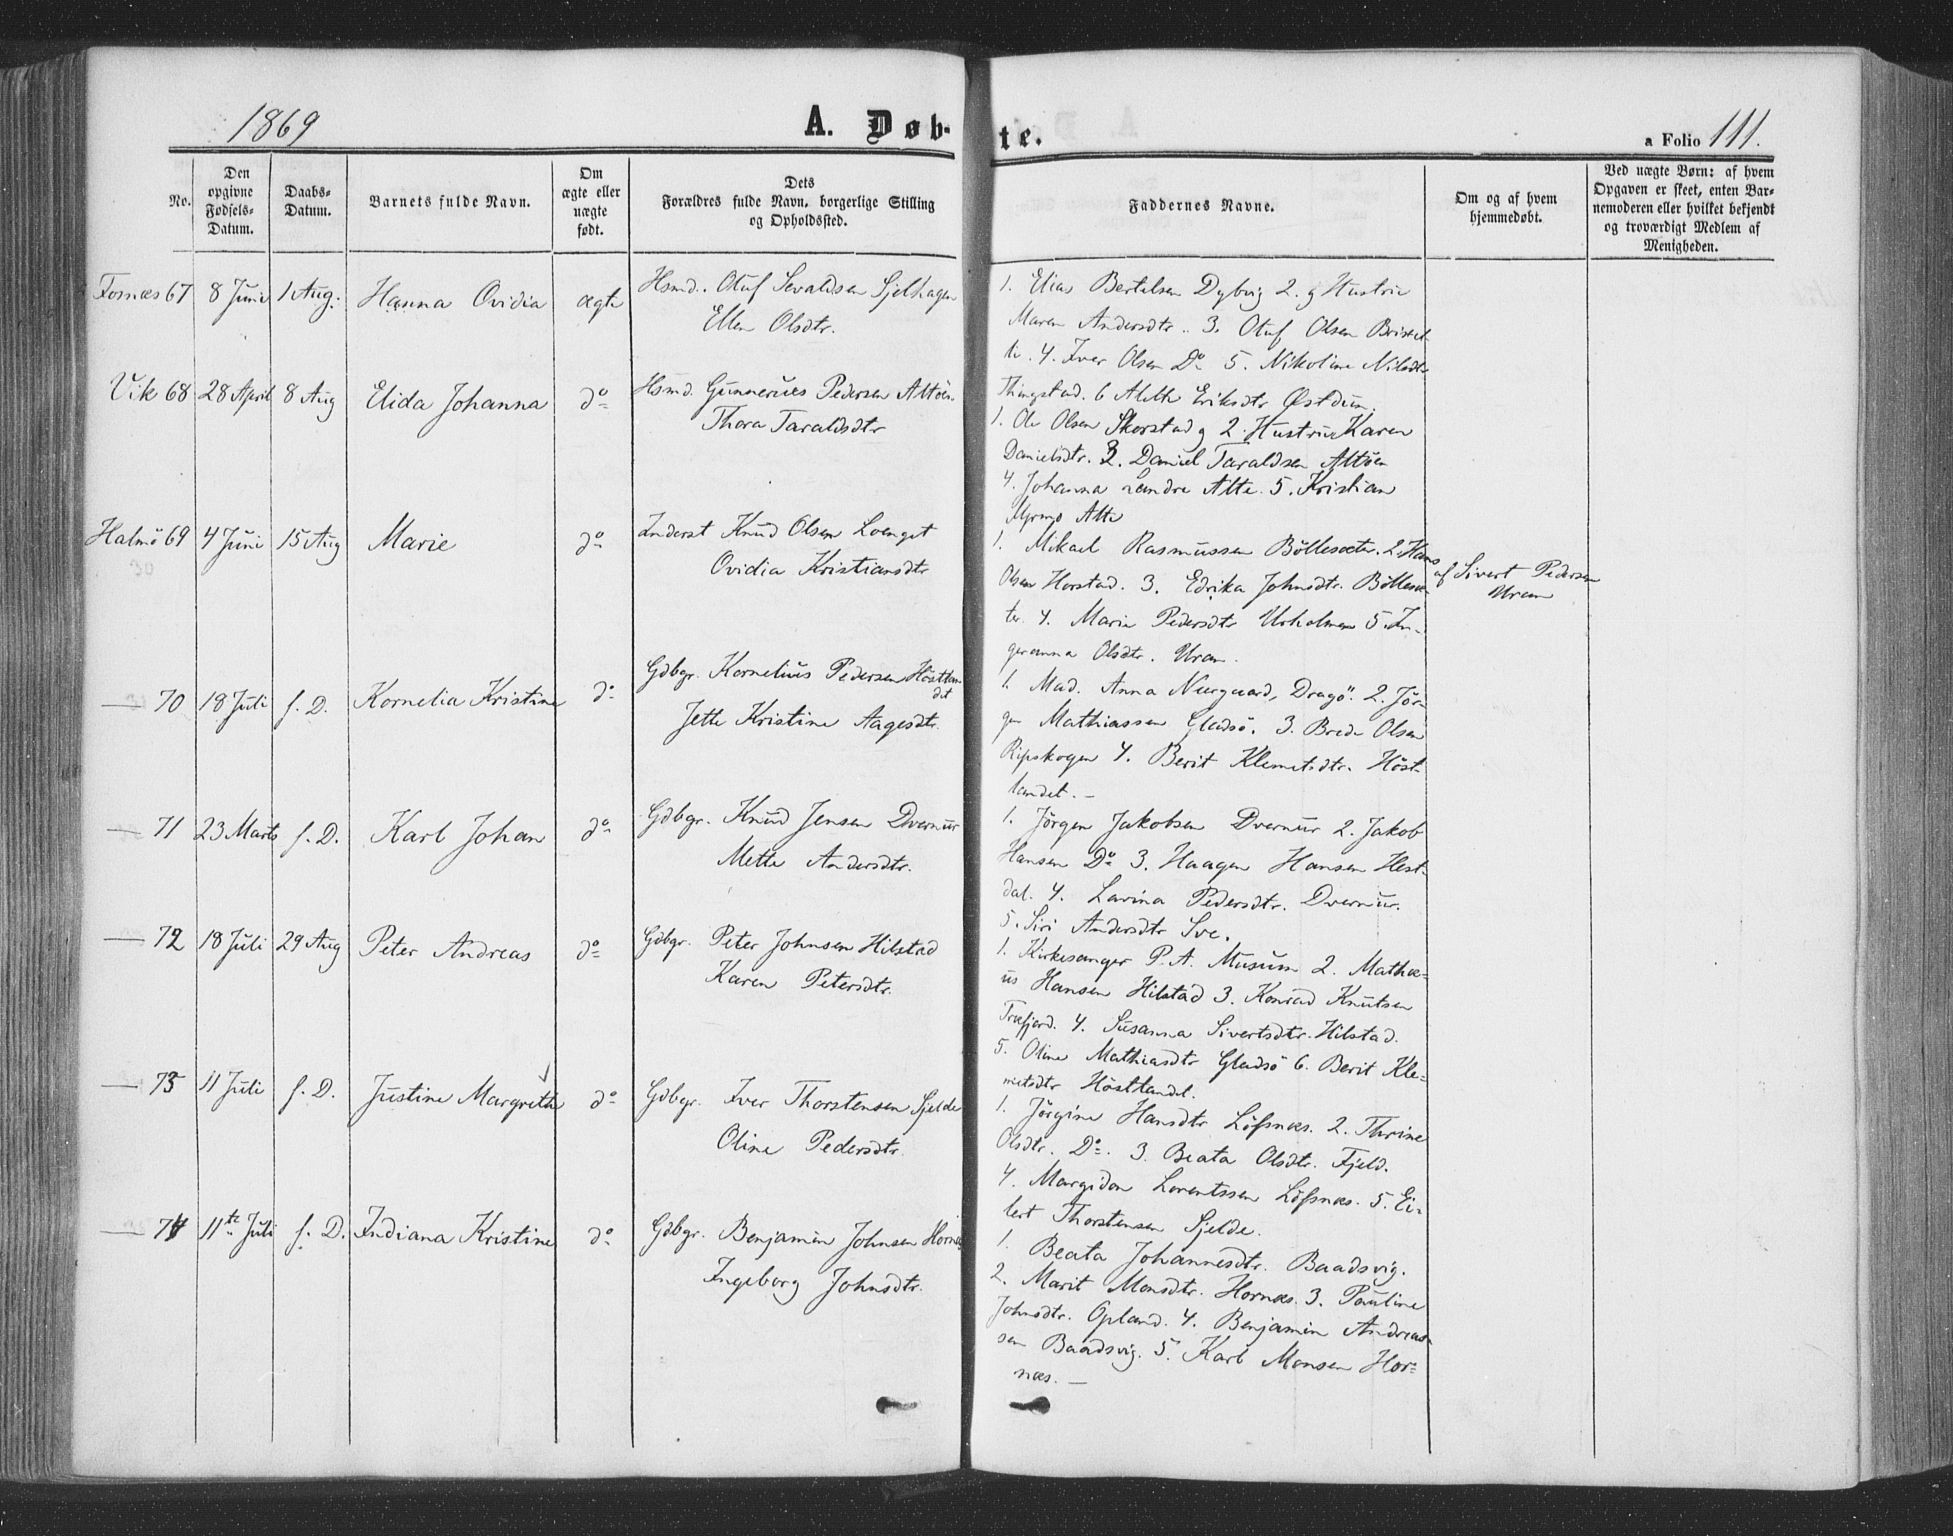 1869
A. Døb-
te.
a Folio 111.
No.
Den
opgivne
Fødsels-
Datum.
Daabs-
Datum.
Barnets fulde Navn.
Om
ægte eller
uægte
født.
Dets
Forældres fulde Navn, borgerlige Stilling
og Opholdssted.
Faddernes Navne.
Om og af hvem
hjemmedøbt.
Ved uægte Børn: af hvem
Opgaven er skeet, enten Bar-
nemoderen eller hvilket bekjendt
og troværdigt Medlem af
Menigheden.
Fosnæs 67 8 Juni 1 Aug. Hanna Ovidia ægte Hsmd. Oluf Sevaldsen Sjelhagen
Ellen Olsdtr.
1. Elias Bertelsen Dybvig 2. g Hustru
Maren Andersdtr. 3. Oluf Olsen
4. Iver Olsen Do 5. Nikoline Nilsdtr
Thingstad. 6 Aleth Eriksdtr Østduun.
Vik 68 28 April 8 Aug Elida Johanna do Hsmd. Gunnerius Pedersen Altøen
Thora Taraldsdtr
1. Ole Olsen Skorstad g 2. Hustru Karen
Danielsdtr. 3. Daniel Taraldsen Altøen
4. Johanna Alte. 5. Kristian
Myrmo Alte
Halmö 69 4 Juni 15 Aug Marie do Inderst Knud Olsen Loenget
30
Ovidia Kristiansdtr
1. Mikael Rasmussen Böllesæter. 2. Hans
Olsen Horstad. 3. Edrika Johnsdtr. Böllesæ-
ter 4. Marie Pedersdtr Urholmen 5. In-
geranna Olsdtr. Uran.
af Sivert Pedersen
Uran
— 70 18 Juli s. D. Kornelia Kristine do Gdbgr. Kornelius Pedersen Höstlan
det
Jette Kristine Aagesdtr.
1. Mad. Anna Nurgaard, Dragö. 2. Jör-
gen Mathiassen Gladsö. 3. Brede Olsen
Ripskogen 4. Berit Klemetsdtr. Höst-
landet. –
— 71 23 Marts s. D. Karl Johan do Gdbgr. Knud Jensen Dvernur
Mette Andersdtr.
1. Jörgen Jakobsen Dvernur 2. Jakob
Hansen Do 3. Haagen Hansen Hest-
dal. 4. Larina Pedersdtr. Dvernur.
5. Siri Andersdtr Sve.
— 72 18 Juli 29 Aug Peter Andreas do Gdbgr. Peter Johnsen Hilstad
Karen Petersdtr.
1. Kirkesanger P. A. Musum 2. Mathæ-
us Hansen Hilstad 3. Konrad Knutsen
Træfjord. 4. Susanna Sivertsdtr. Hilstad.
5. Oline Mathiasdtr Gladsö 6. Berit Kle-
metsdtr Höstlandet.
— 73 11 Juli s. D. Justine Margrethe do Gdbgr. Iver Thorstensen Sjelde
Oline Pedersdtr.
1. Jörgine Hansdtr Löfsnæs. 2. Thrine
Olsdtr. Do. 3. Beata Olsdtr. Fjeld.
4. Margidon Lorentssen Löfsnæs. 5. Ei-
lert Thorstensen Sjelde.
— 74 11te Juli s. D. Indiana Kristine do Gdbgr. Benjamin Johnsen Hornæs
Ingeborg Johnsdtr.
1. Beata Johannesdtr. Baadsvig.
2. Marit Monsdtr. Hornæs. 3. Pauline
Johnsdtr. Opland. 4. Benjamin Andreas-
sen Baadsvig. 5. Karl Monsen Hor-
næs. –